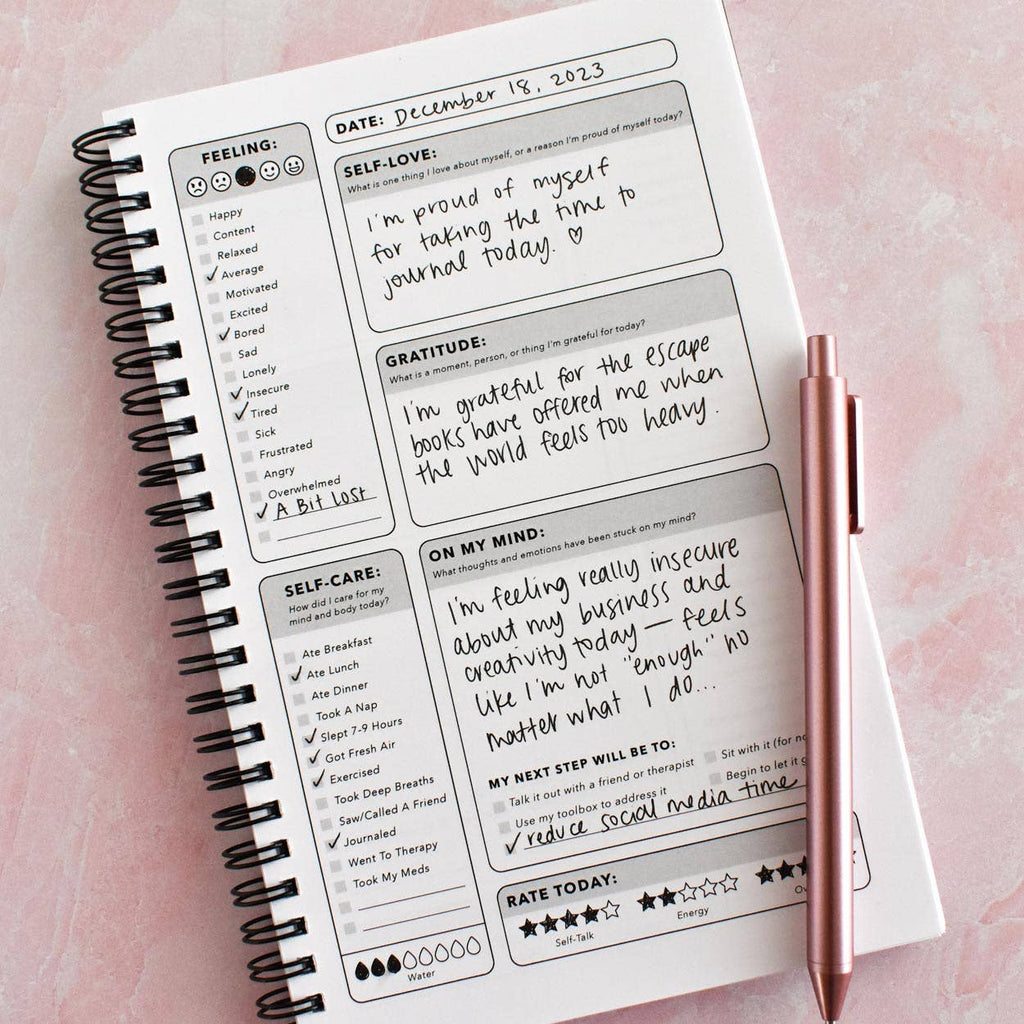 DATE: December 18, 2023
FEELING:
Happy
Content
Relaxed
✓ Average
Motivated
Excited
✓ Bored
Sad
Lonely
✓ Insecure
✓ Tired
Sick
Frustrated
Angry
Overwhelmed
✓ A Bit Lost
SELF-LOVE:
What is one thing I love about myself, or a reason I'm proud of myself today?
I'm proud of myself
for taking the time to
journal today. ♡
GRATITUDE:
What is a moment, person, or thing I'm grateful for today?
I'm grateful for the escape
books have offered me when
the world feels too heavy.
SELF-CARE:
How did I care for my
mind and body today?
Ate Breakfast
✓ Ate Lunch
Ate Dinner
Took A Nap
✓ Slept 7-9 Hours
✓ Got Fresh Air
✓ Exercised
Took Deep Breaths
Saw/Called A Friend
✓ Journaled
Went To Therapy
Took My Meds
Water
ON MY MIND:
What thoughts and emotions have been stuck on my mind?
I'm feeling really insecure
about my business and
creativity today — feels
like I'm not "enough" no
matter what I do...
MY NEXT STEP WILL BE TO:
Talk it out with a friend or therapist
Sit with it (for
Use my toolbox to address it
Begin to let it
✓ reduce social media time
RATE TODAY:
Self-Talk
Energy